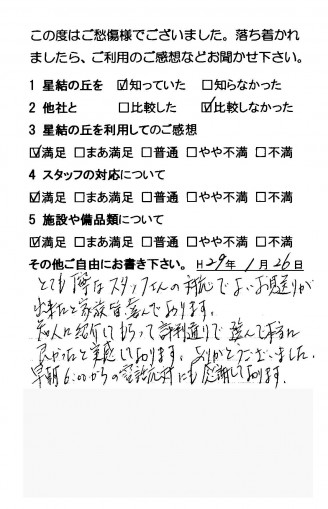 この度はご愁傷様でございました。落ち着かれ
ましたら、ご利用のご感想などお聞かせ下さい。
1 星結の丘を ☑知っていた □知らなかった
2 他社と □比較した ☑比較しなかった
3 星結の丘を利用してのご感想
☑満足 □まあ満足 □普通 □やや不満 □不満
4 スタッフの対応について
☑満足 □まあ満足 □普通 □やや不満 □不満
5 施設や備品類について
☑満足 □まあ満足 □普通 □やや不満 □不満
その他ご自由にお書き下さい。 H29年 1月 26日
とても丁寧なスタッフさんの対応でよいお見送りが
出来たと家族皆喜んでおります。
知人に紹介してもらって評判通りで選んで本当に
良かったと実感しております。ありがとうございました。
早朝6:00からの電話応対にも感謝しております。